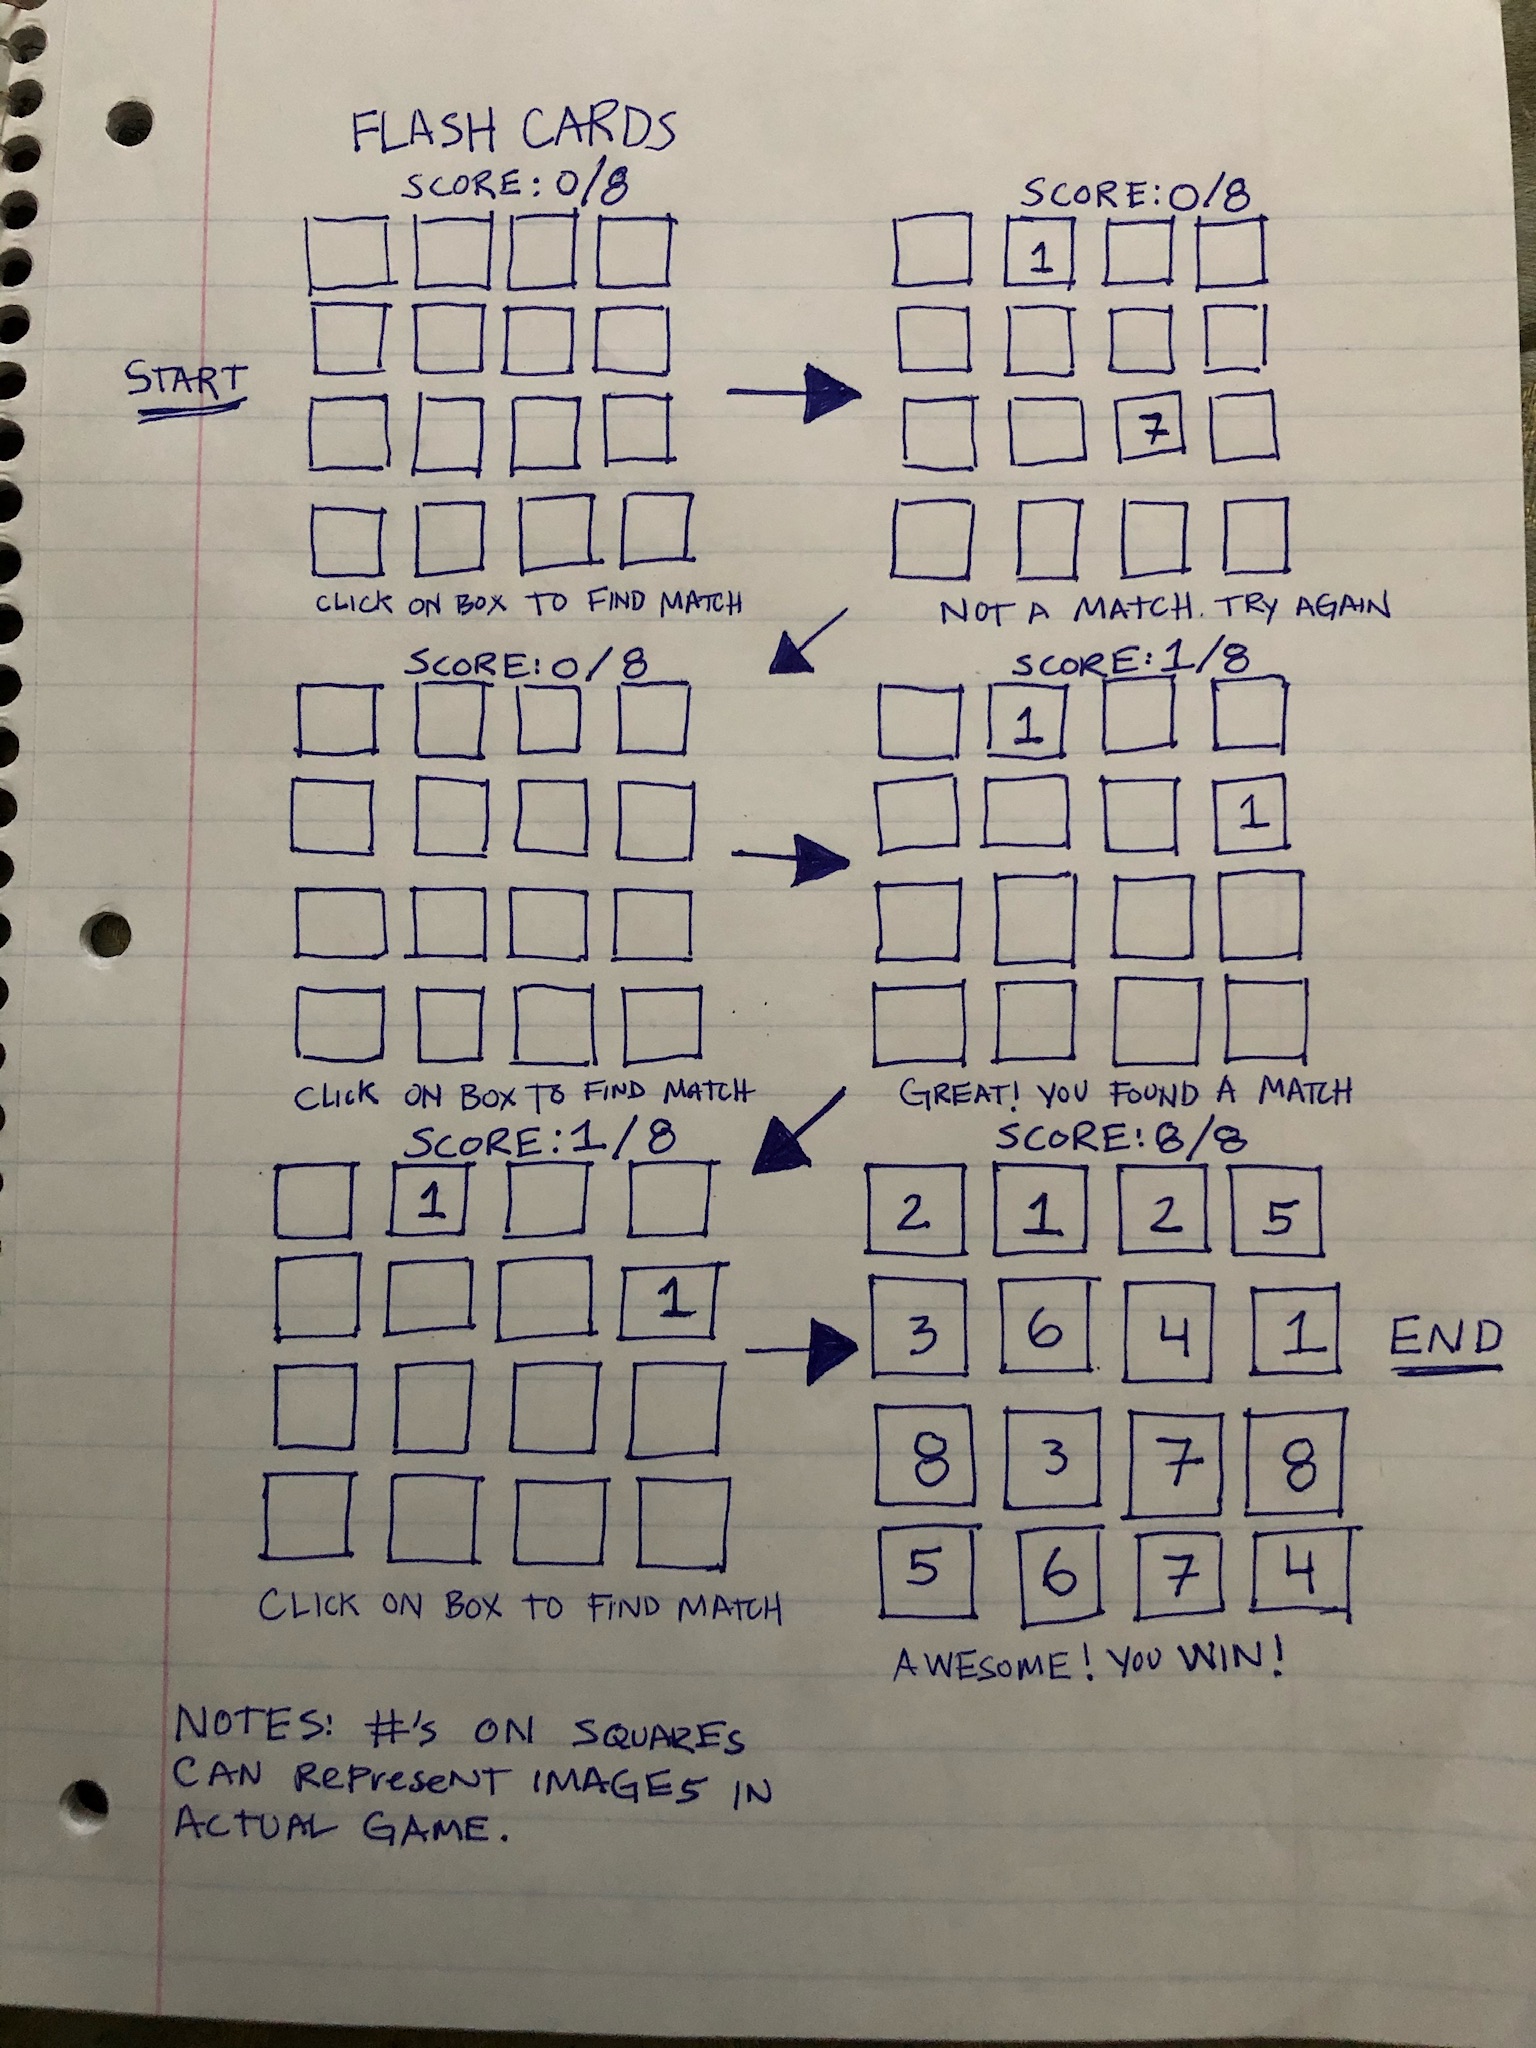 FLASH CARDS
SCORE: 0/8
START
CLICK ON BOX TO FIND MATCH
SCORE: 0/8
1
7
NOT A MATCH. TRY AGAIN
SCORE: 0/8
CLICK ON BOX TO FIND MATCH
SCORE: 1/8
1
1
GREAT! YOU FOUND A MATCH
SCORE: 1/8
1
1
CLICK ON BOX TO FIND MATCH
SCORE: 8/8
2 1 2 5
3 6 4 1
8 3 7 8
5 6 7 4
END
AWESOME! YOU WIN!
NOTES: #'S ON SQUARES
CAN REPRESENT IMAGES IN
ACTUAL GAME.